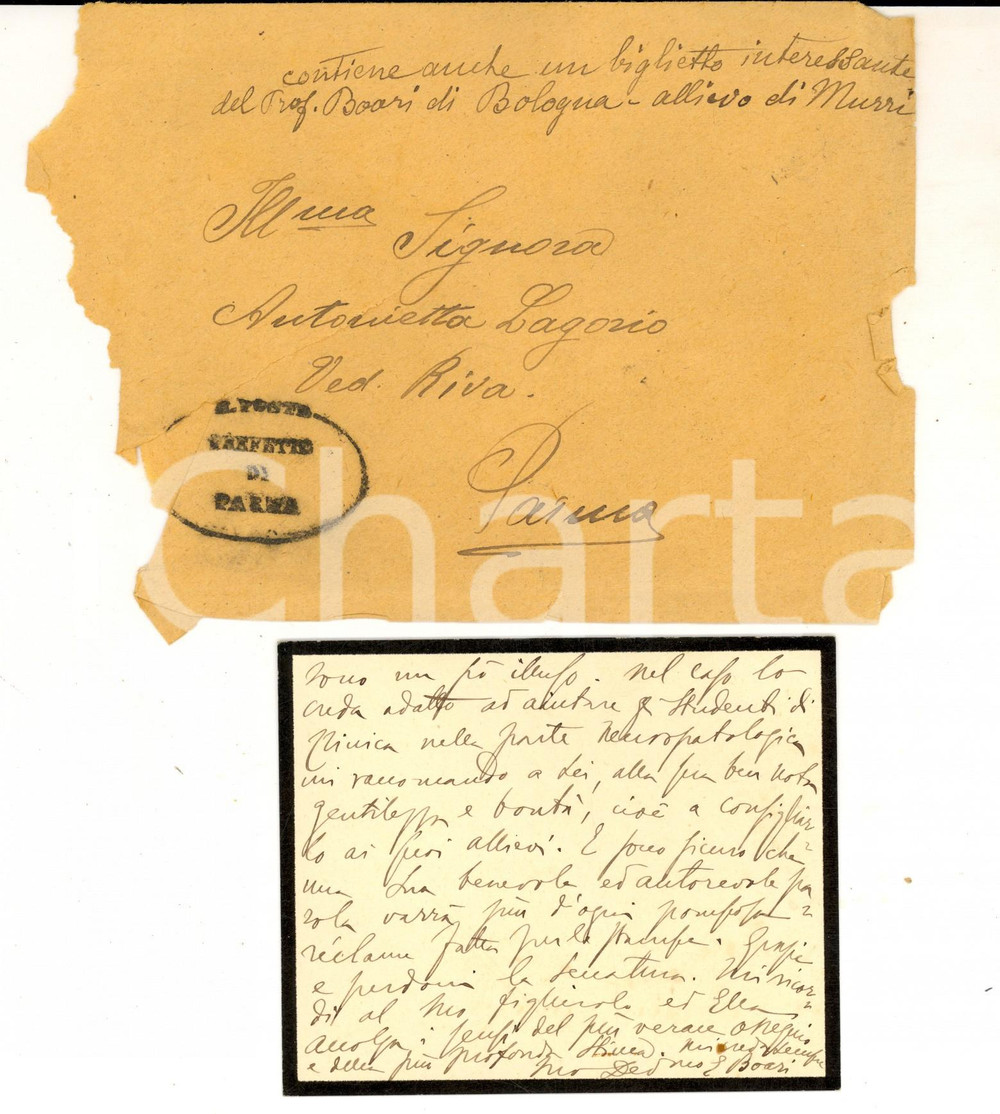 contiene anche un biglietto interessante
del Prof. Boari di Bologna - allievo di Murri
Ill.ma
Signora
Antonietta Lagorio
Ved. Riva.
Parma
R. POSTE
PREFETTO
DI
PARMA
Charta
sono un pò illuso. Nel caso lo
creda adatto ad aiutare gli studenti di
Clinica nella parte Neuropatologica
mi raccomando a Lei, alla sua ben nota
gentilezza e bontà, cioè a consigliar=
lo ai suoi allievi. E sono sicuro che
una Sua benevola ed autorevole pa
rola varrà più d'ogni pomposa
réclame fatta per le stampe. Grazie
e perdoni la seccatura. Mi ricor=
di al Suo figliuolo ed Ella
accolga i sensi del più verace ossequio
e della più profonda stima. mi creda sempre
Suo Dev.mo E Boari